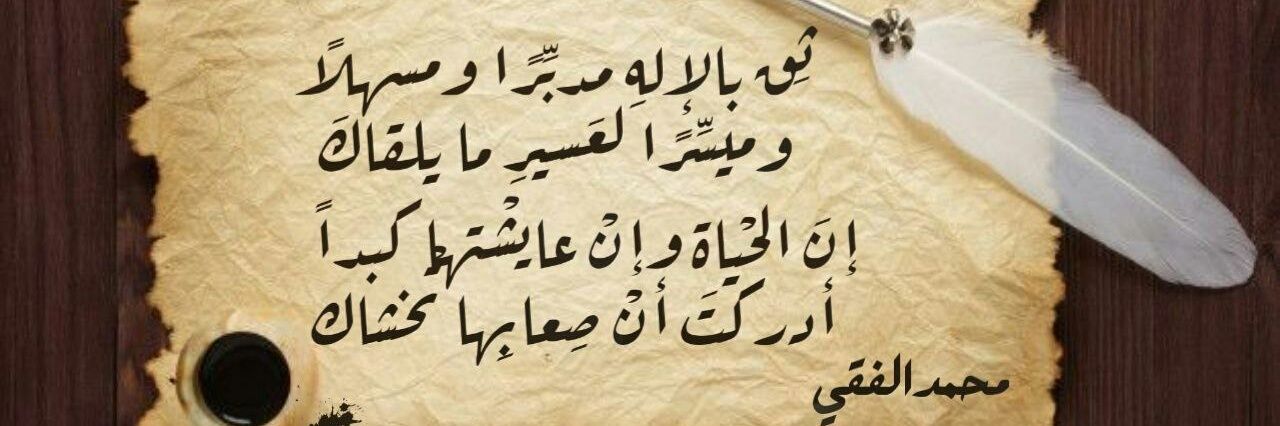 ثِق بالإلهِ مدبّرًا و مسهلًا
و ميسّرًا لعَسيرِ ما يلقاكَ
إنَ الحْياة و إنْ عايشْتها كبداً
أدركتَ أنْ صِعابِها تخشاك
محمد الفقي